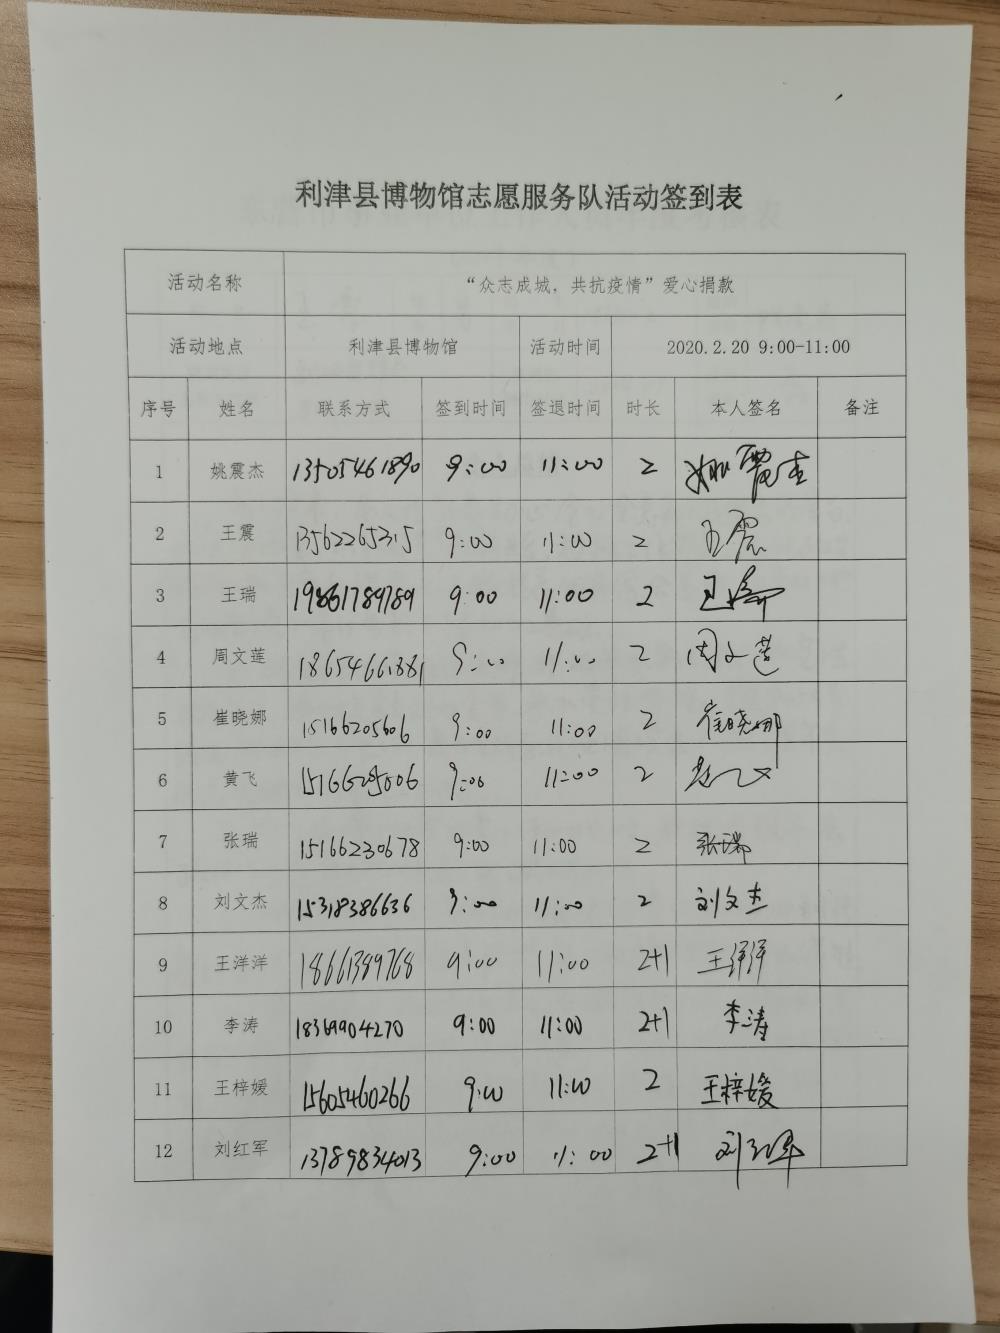 利津县博物馆志愿服务队活动签到表
活动名称 “众志成城，共抗疫情”爱心捐款
活动地点 利津县博物馆 活动时间 2020.2.20 9:00-11:00
序号 姓名 联系方式 签到时间 签退时间 时长 本人签名 备注
1 姚震杰 13505461890 9:00 11:00 2 姚震杰
2 王震 13562265315 9:00 11:00 2 王震
3 王瑞 19861789789 9:00 11:00 2 王瑞
4 周文莲 18654661881 9:00 11:00 2 周文莲
5 崔晓娜 15166205606 9:00 11:00 2 崔晓娜
6 黄飞 9:00 11:00 2
7 张瑞 15166230678 9:00 11:00 2 张瑞
8 刘文杰 15318386636 9:00 11:00 2 刘文杰
9 王洋洋 18661389768 9:00 11:00 2+1 王洋洋
10 李涛 18369904270 9:00 11:00 2+1 李涛
11 王梓媛 15605460266 9:00 11:00 2 王梓媛
12 刘红军 13789834013 9:00 11:00 2+1 刘红军